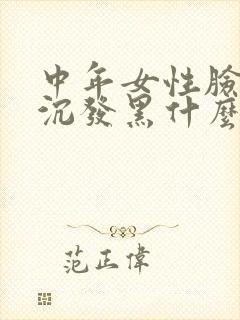 中年女性臉
沉發黑什麼
范正偉